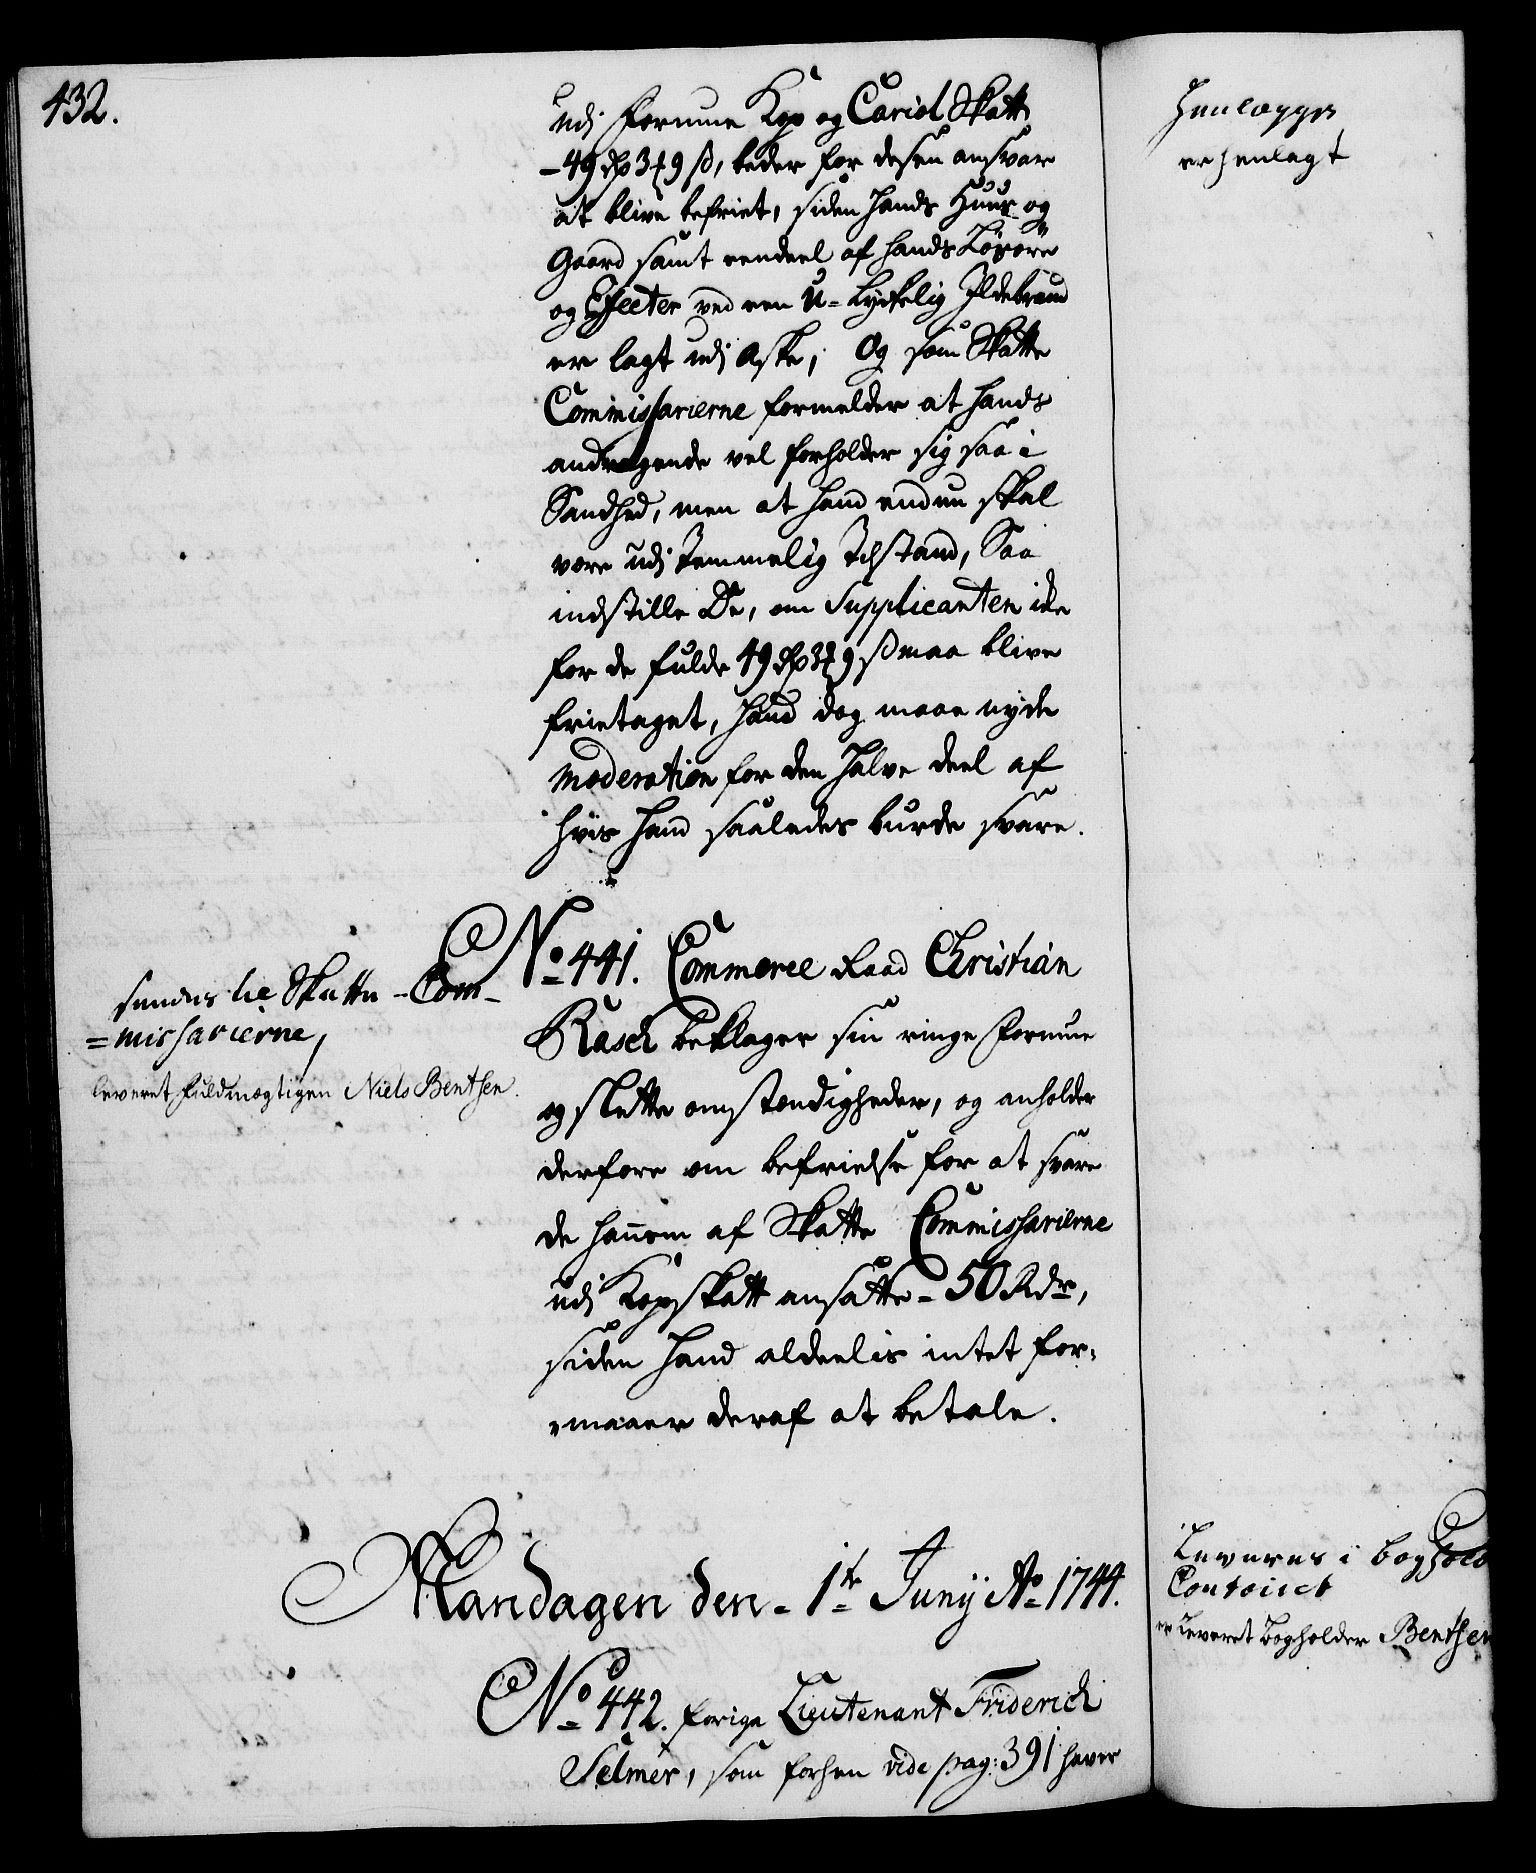 432.
udj Formue Kop og Cariol Skatt
- 49 rdr 3 ₰ 9 ß, beder for desen ansvar
at blive befriet, siden hands Huus og
Gaard samt eendeel af hands Løsöre
og Effecter ved een U-Lyckelig Ildebrand
er lagt udj Aske; Og som Skatte
Commissarierne formelder at hands
andragende vel forholder sig saa i
Sandhed, men at hand endnu skal
være udj temmelig Tilstand, Saa
indstille De, om Supplicanten icke
for de fulde 49 rdr 3 ₰ 9 ß maa blive
frietaget, hand dog maae nyde
Moderation for den halve deel af
hvis hand saaledes burde svare.
No 441. Commerce Raad Christian
Rasch beklager sin ringe Formue
og slette omstændigheder, og anholder
derfore om befrielse for at svare
de hannem af Skatte Commissarierne
udj Kopskatt ansatte - 50 Rdr,
siden hand aldeelis intet for-
-maaer deraf at betale.
sendes til Skatte-Com-
=missarierne,
leveret Fuldmægtigen Niels Bentsen.
Mandagen den - 1te Junij Ao 1744.
No 442. forige Lieutenant Friderich
Selmer, som forhen vide pag: 391 haver
Henlægges
er henlagt
Leveres i Boghold
Contoiret
er Leveret Bogholder Bentsen